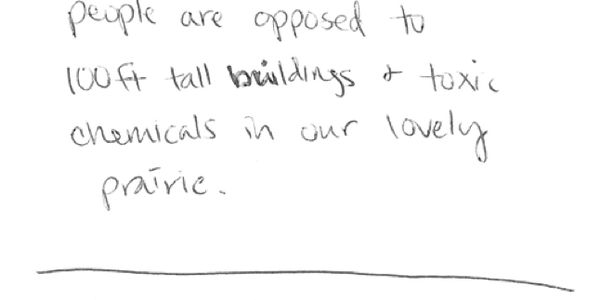 people are opposed to
100ft tall buildings + toxic
chemicals in our lovely
prairie.